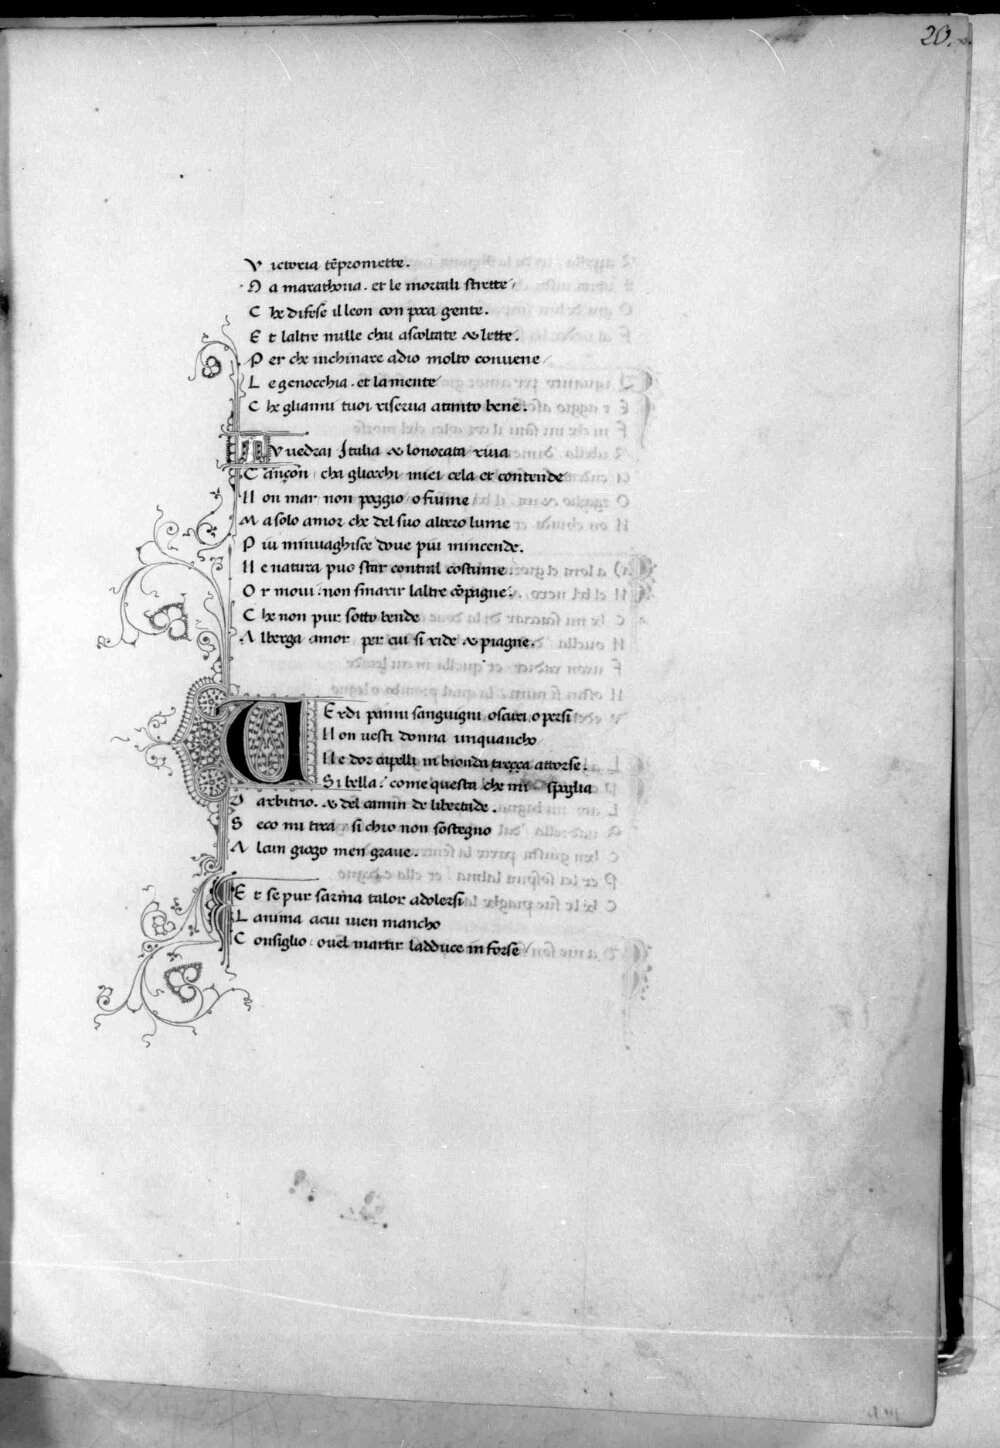 20.
Victoria tēpromette.
Da marathona. et le mortali strette
Che difese il leon con poca gente.
Et laltre mille chai ascoltate & lette.
Per che inchinare a dio molto convene
Le genocchia. et la mente
Che gliannи tuoi riserva atanto bene.
Tu vedrai Italia & lonorata riva
Cançon cha gliocchi miei cela et contende
Non mar non poggio o fiume
Ma solo amor che del suo altero lume
Piu minvaghisce dove piu mincende.
Ne natura puo star contral costume
Or movi. non smarir laltre cōpagne.
Che non pur sotto bende
Alberga amor per cui si ride & piagne.
Verdi panni sanguigni oscuri o persi
Non vesti donna unquancho
Ne dor capelli in bionda treçça attorse.
Si bella. come questa che mi spoglia
Darbitrio. & del camin de libertade.
Seco mi tira. si chio non sostegno
Alcun giogo men grave.
Et se pur sarma talor adolersi
Lanima acui vien mancho
Consiglio. ovel martir ladduce in forse